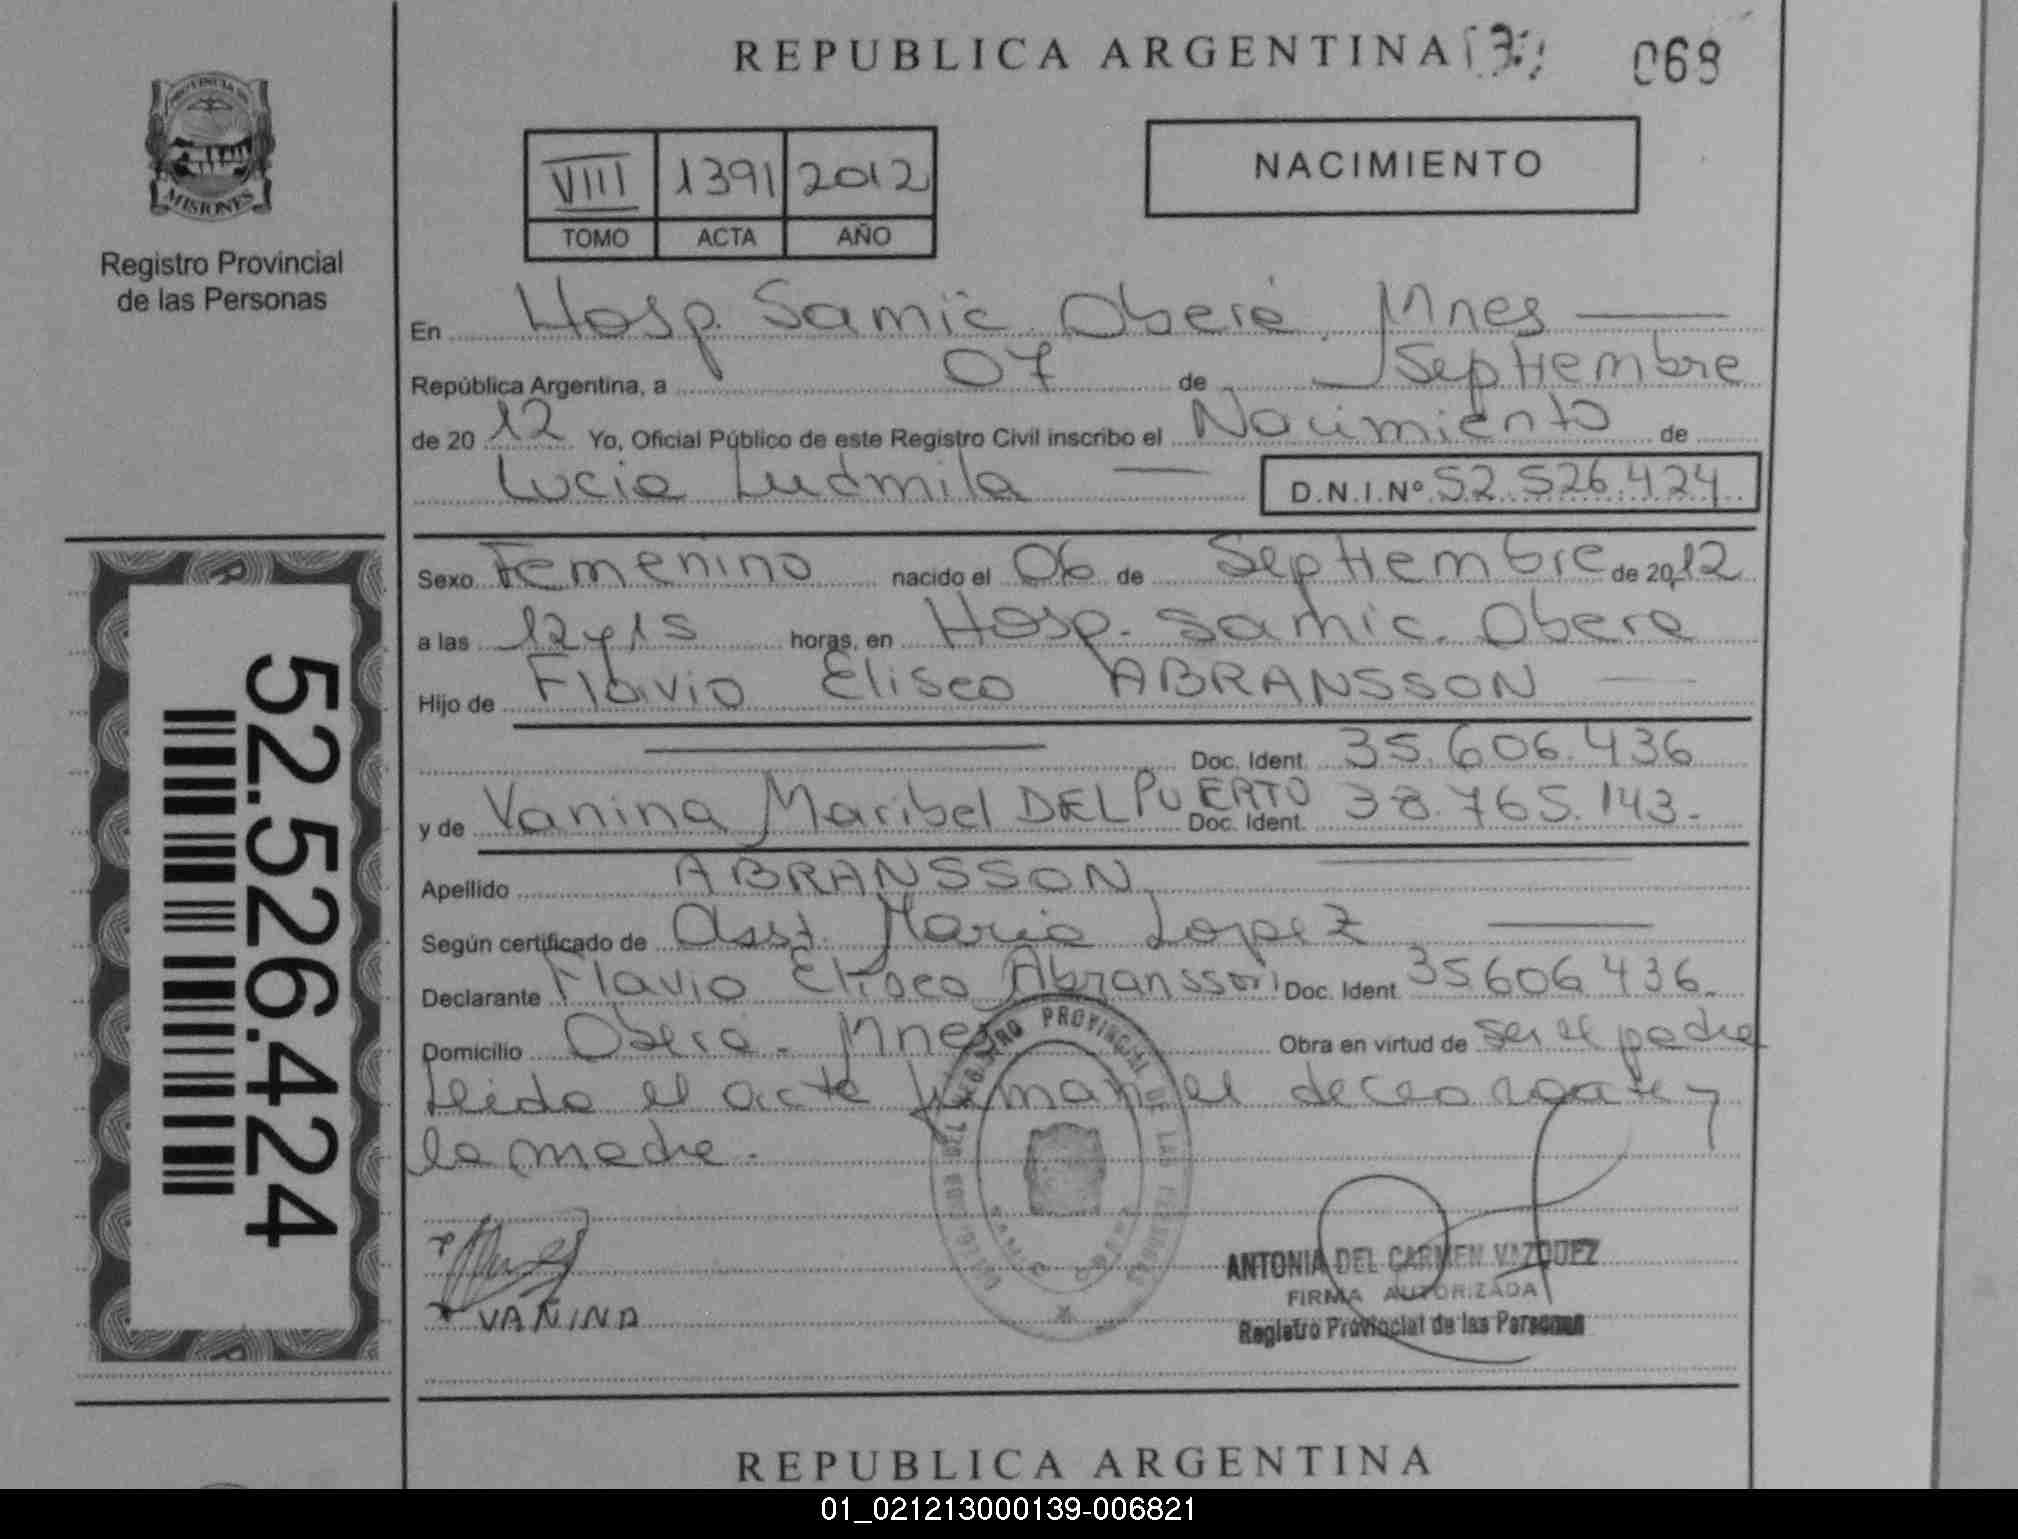 REPUBLICA ARGENTINA
068
PROVINCIA DE
MISIONES
Registro Provincial
de las Personas
NACIMIENTO
VIII 1391 2012
TOMO ACTA AÑO
En Hosp. Samic Oberá Mnes
República Argentina, a 07 de Septiembre
de 20 12 Yo, Oficial Público de este Registro Civil inscribo el Nacimiento de
Lucia Ludmila D.N.I.Nº 52.526.424
Sexo Femenino nacido el 06 de Septiembre de 20 12
a las 12 y 15 horas, en Hosp. Samic. Obera
Hijo de Flavio Eliseo ABRANSSON
Doc. Ident. 35.606.436
y de Vanina Maribel DEL PUERTO Doc. Ident. 38.765.143.
Apellido ABRANSSON
Según certificado de Obst. Maria Lopez
Declarante Flavio Eliseo Abransson Doc. Ident. 35606436.
Domicilio Oberá - Mnes Obra en virtud de ser el padre
Leida el acta firman el y
la madre.
52.526.424
VANINA
REGISTRO PROVINCIAL DE LAS PERSONAS
ANTONIA DEL CARMEN VAZQUEZ
FIRMA AUTORIZADA
Registro Provincial de las Personas
REPUBLICA ARGENTINA
01_021213000139-006821